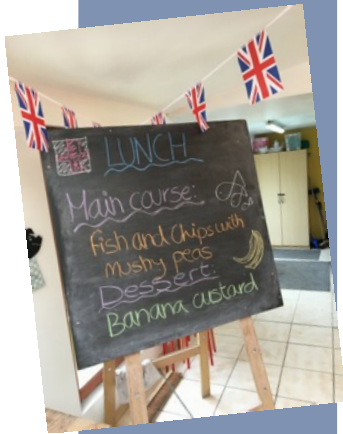 LUNCH
Main course:
fish and Chips with
mushy peas
Dessert:
Banana custard